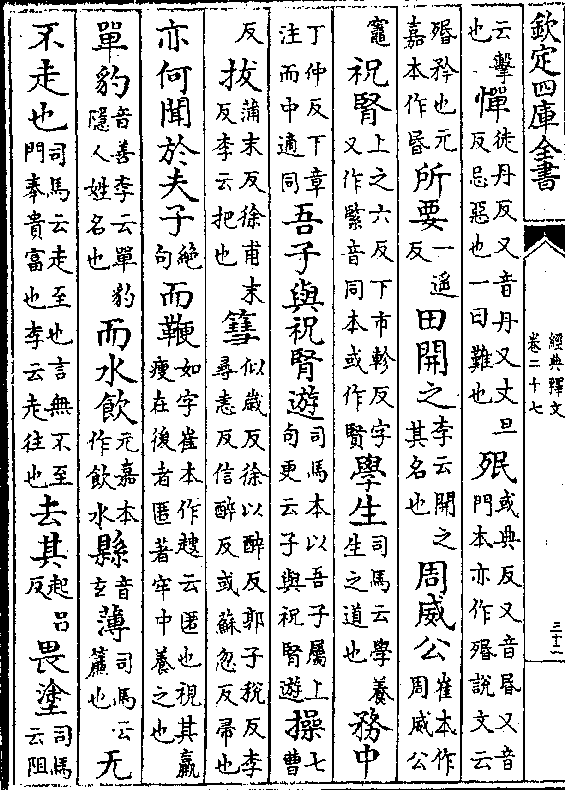 欽定四庫全書
經典釋文
卷二十七
三十二
云擊也憚徒丹反又音丹又丈旦反忌惡也一曰難也殙或典反又音昬又音門本亦作殙說文云
殙矜也元嘉本作昬所要一遥反田開之李云開之其名也周威公崔本作周威公
竈祝腎上之六反下市軫反字又作緊音同本或作賢學生司馬云學養生之道也務中
丁仲反下章注而中適同吾子與祝腎遊司馬本以吾子屬上句更云子與祝腎遊操七曹
反拔蒲末反徐甫末反李云把也篲似嵗反徐以醉反郭子稅反李尋恚反信醉反或蘇忽反帚也
亦何聞於夫子絕句而鞭如字崔本作趡云匿也視其羸瘦在後者匿著牢中養之也
單豹音善李云單豹隱人姓名也而水飲元嘉本作飲水縣音玄薄司馬云簾也无
不走也司馬云走至也言無不至門奉貴富也李云走往也去其起呂反畏塗司馬云阻